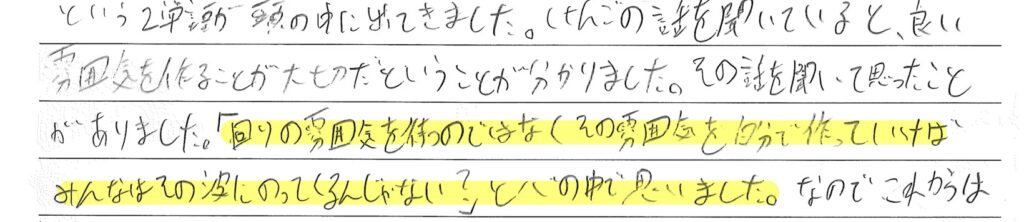 という2単語が頭の中に出てきました。けんごの話を聞いていると、良い
雰囲気を作ることが大切だということが分かりました。その話を聞いて思ったこと
がありました。「回りの雰囲気を待つのではなくその雰囲気を自分で作っていけば
みんなはその波にのってくるんじゃない?」と心の中で思いました。なのでこれからは